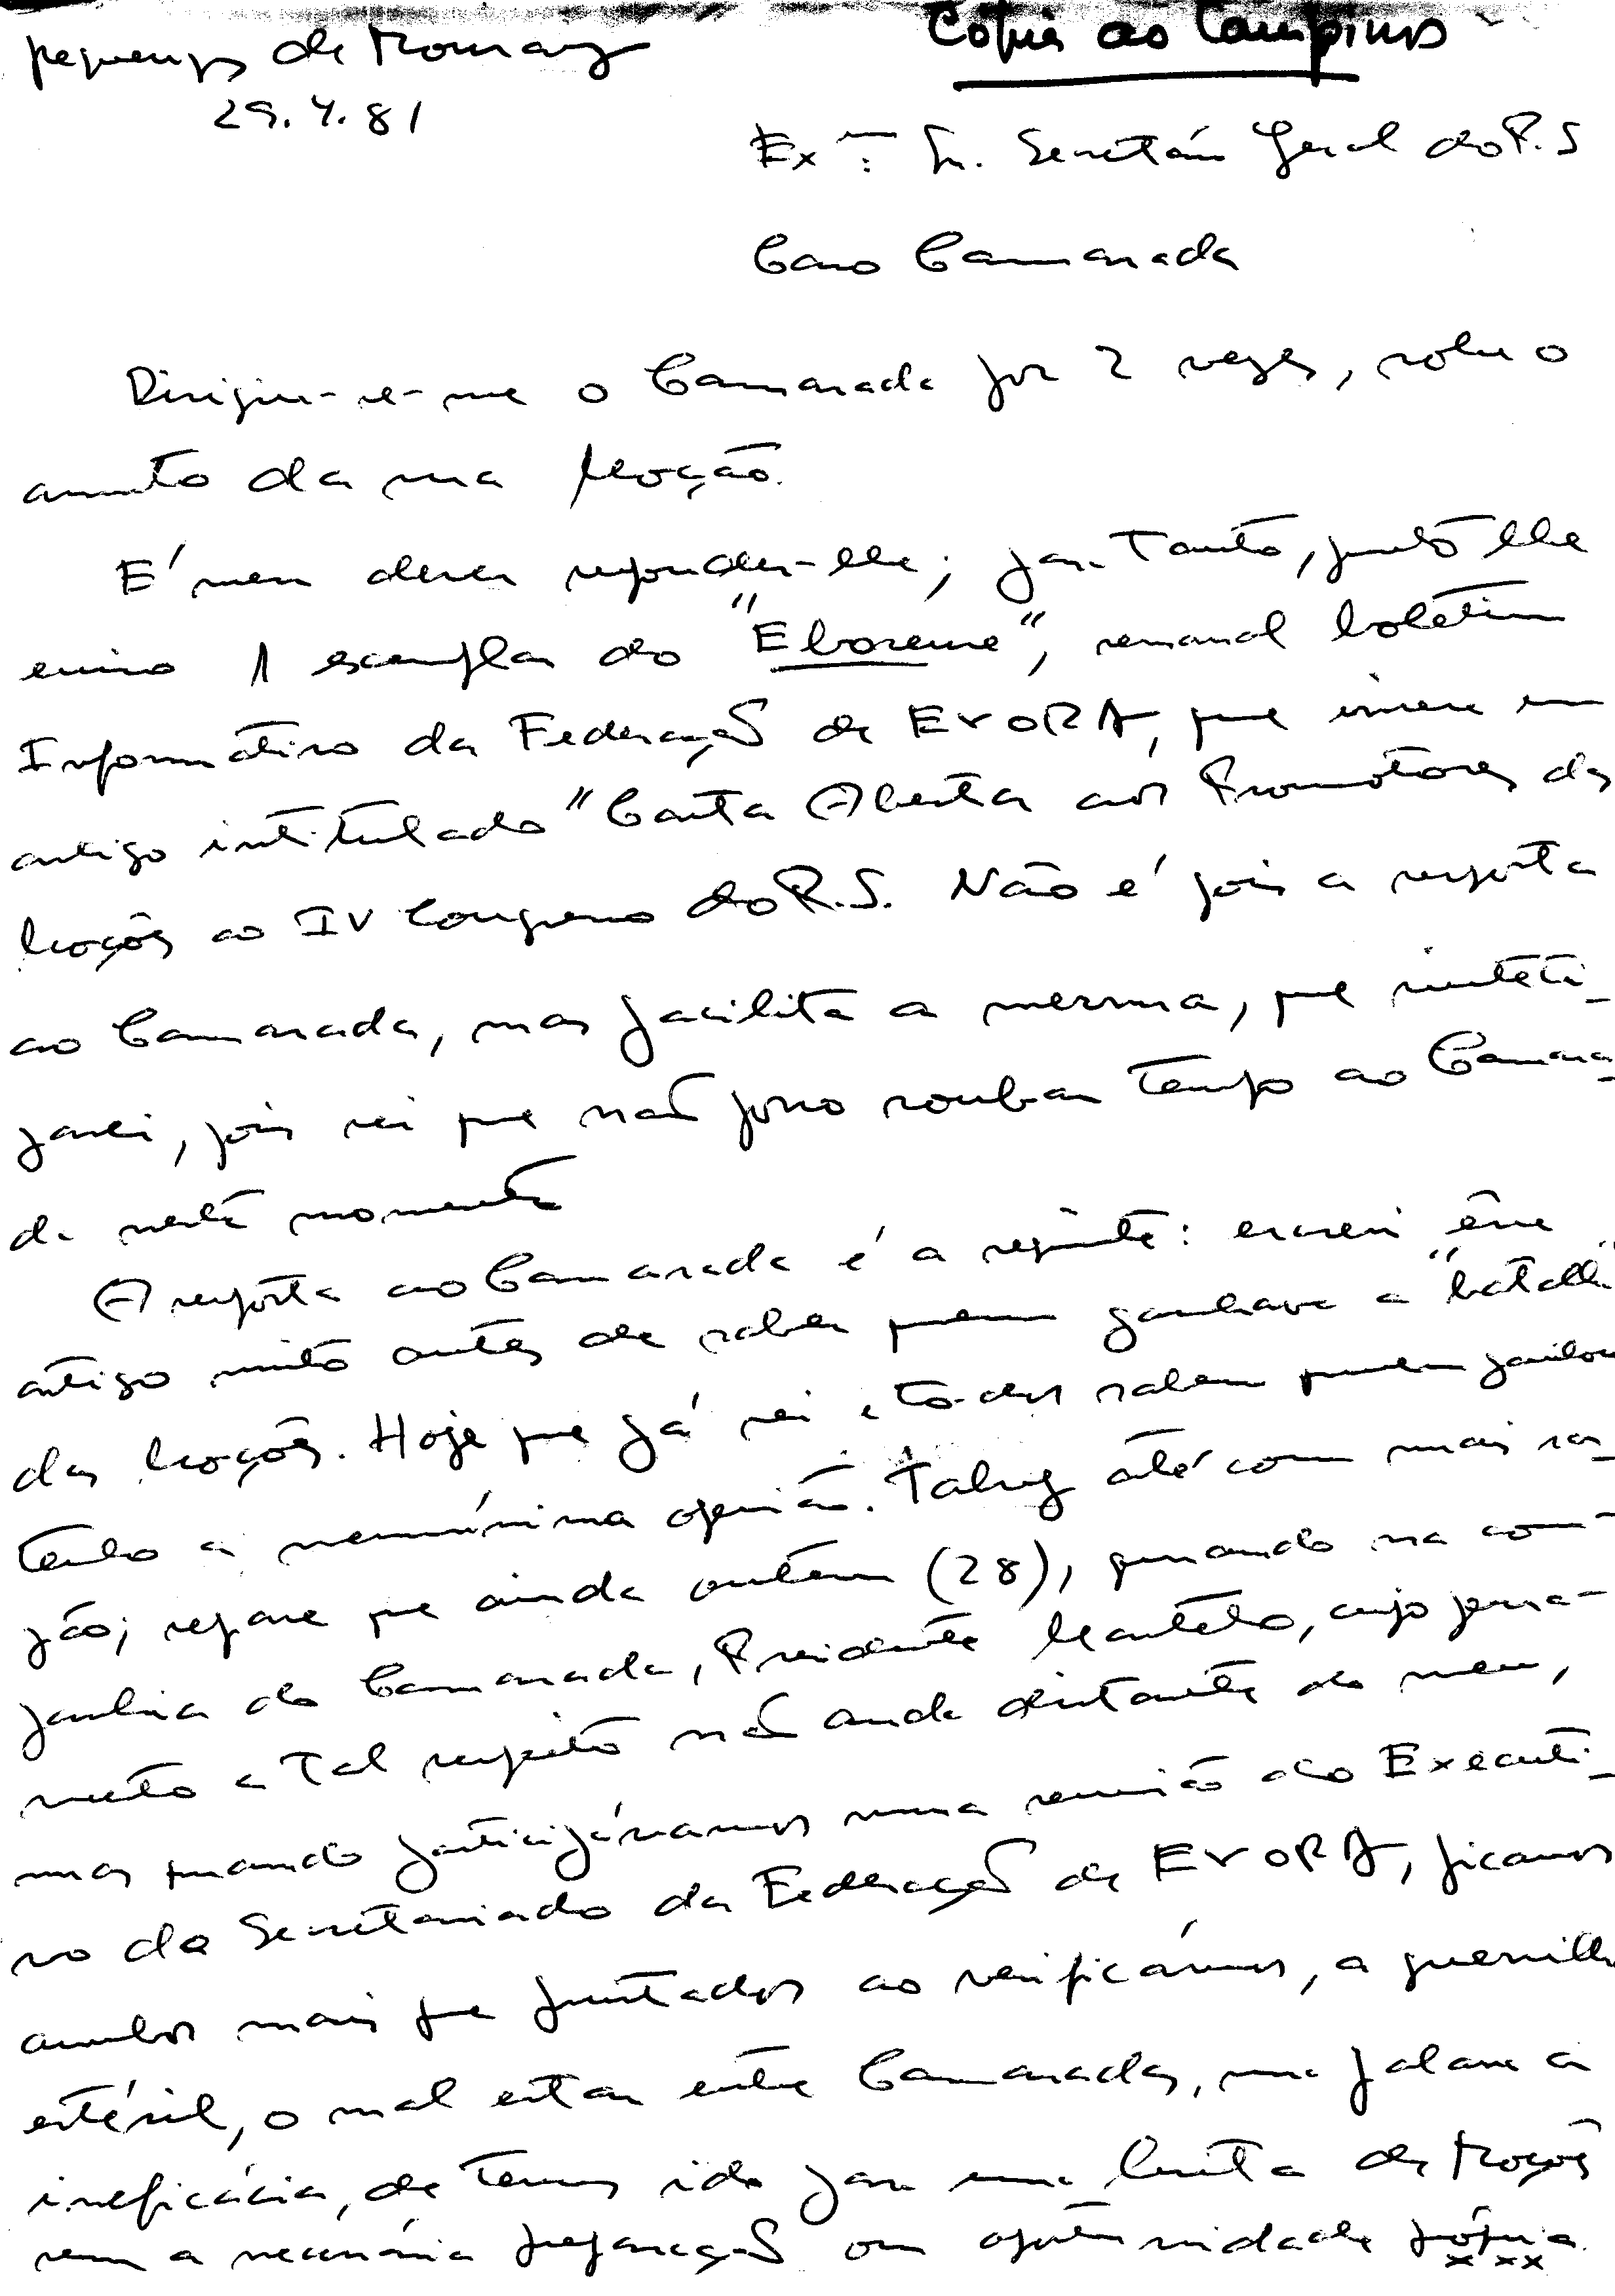 Reguengos de Monsaraz
Cópia ao Campinos
29.4.81
Exmº Sr. Secretário Geral do P.S
Caro Camarada
Dirigiu-se-me o Camarada por 2 vezes, sobre o
assunto da sua Moção.
É meu dever responder-lhe; para tanto, junto lhe
envio 1 exemplar do "Eborense", semanal boletim
Informativo da Federação de EVORA, que insere um
artigo intitulado "Carta Aberta aos Promotores das
Moções ao IV Congresso do P.S. Não é pois a resposta
ao Camarada, mas facilita a mesma, que sinteti-
zarei, pois sei que não posso roubar tempo ao Camara-
da neste momento
A resposta ao Camarada é a seguinte: escrevi êsse
artigo muito antes de saber quem ganhava a "batalha"
das Moções. Hoje que já sei e todos sabem quem ganhou
tenho a mesmíssima opinião. Talvez até com mais ra-
zão; repare que ainda ontem (28), quando na com-
panhia do Camarada, Presidente Manteto, cujo pensa-
mento a tal respeito não anda distante do meu,
mas quando participávamos numa reunião do Executi-
vo do Secretariado da Federação de EVORA, ficamos
ambos mais que frustados ao verificármos, a guerrilha
estéril, o mal estar entre Camaradas, uma palavra a
ineficácia, de termos ido para uma luta de Moções
sem a necessária preparação ou oportunidade própria.
x xx